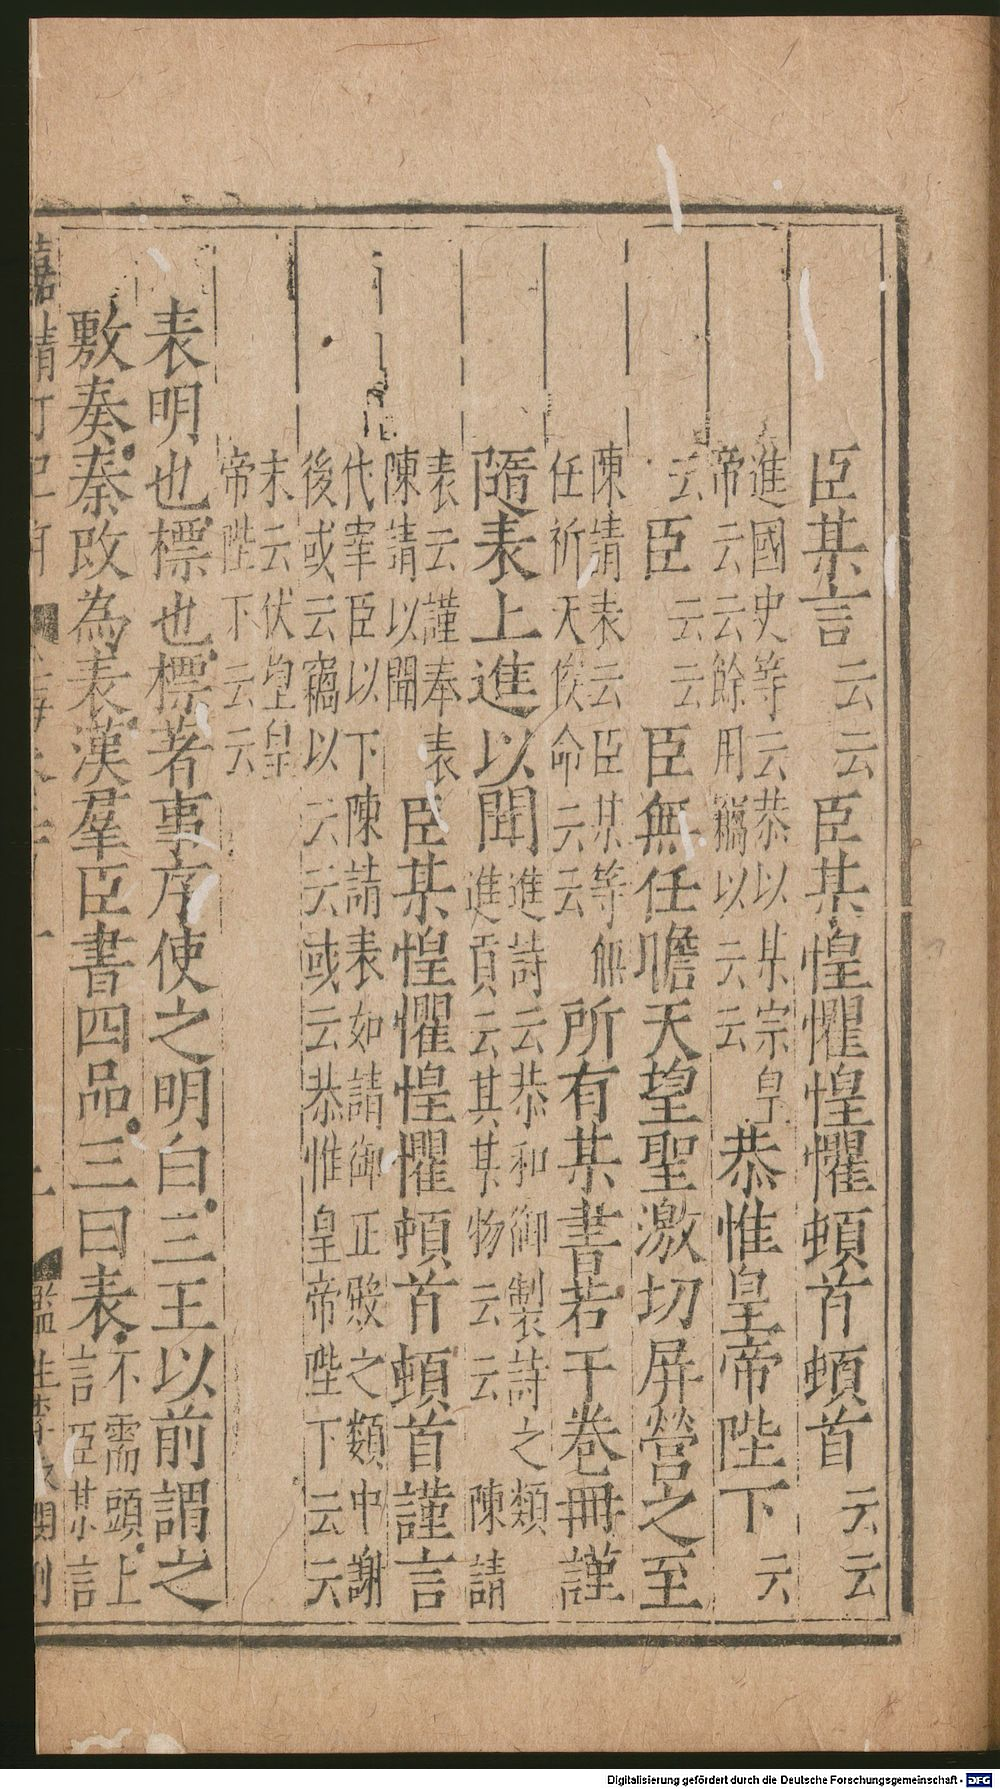 臣某言云云臣某惶懼惶懼頓首頓首云云
進國史等云恭以某宗皇
帝云云餘用竊以云云恭惟皇帝陛下云
云臣云云臣無任瞻天望聖激切屏營之至
陳請表云臣某等無
任祈天俟命云云所有某書若干卷冊謹
隨表上進以聞進詩云恭和御製詩之類
進貢云其某物云云陳請
表云謹奉表
陳請以聞臣某惶懼惶懼頓首頓首謹言
代宰臣以下陳請表如請御正殿之類中謝
後或云竊以云云或云恭惟皇帝陛下云云
末云伏望皇
帝陛下云云
表明也標也標著事序使之明白三王以前謂之
敷奏秦改為表漢羣臣書四品三曰表不需頭上
言臣某言
監生
刊
Digitalisierung gefördert durch die Deutsche Forschungsgemeinschaft - DFG